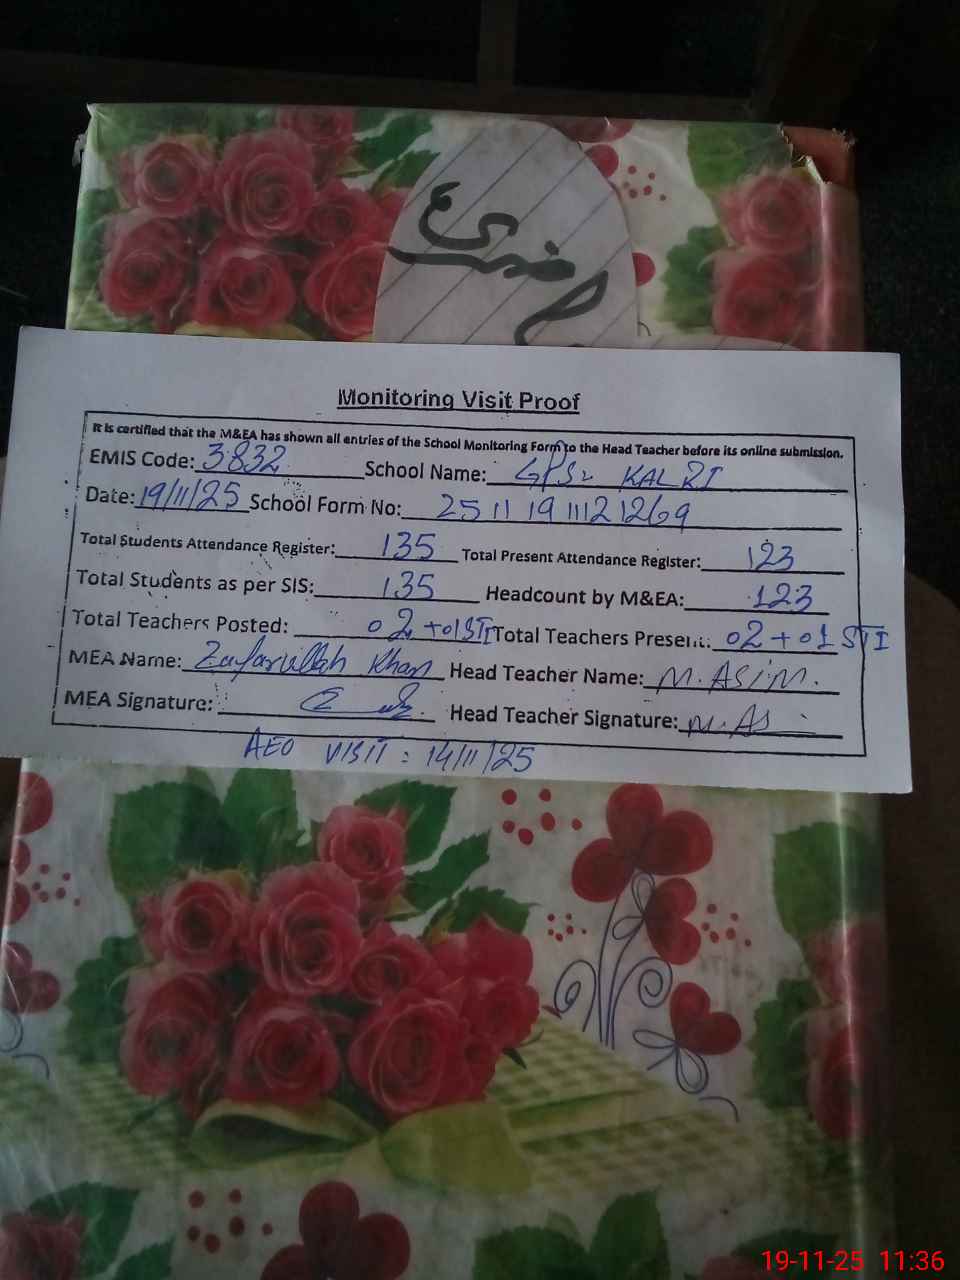 حاضری
Monitoring Visit Proof
It is certified that the M&EA has shown all entries of the School Monitoring Form to the Head Teacher before its online submission.
EMIS Code: 3832 School Name: GPS: KALRI
Date: 19/11/25 School Form No: 25 11 19 11121269
Total Students Attendance Register: 135 Total Present Attendance Register: 123
Total Students as per SIS: 135 Headcount by M&EA: 123
Total Teachers Posted: 02 +01 STI Total Teachers Present: 02 + 01 STI
MEA Name: Zafarullah Khan Head Teacher Name: M. ASIM.
MEA Signature: Head Teacher Signature: M. AS
AEO VISIT : 14/11/25
19-11-25 11:36